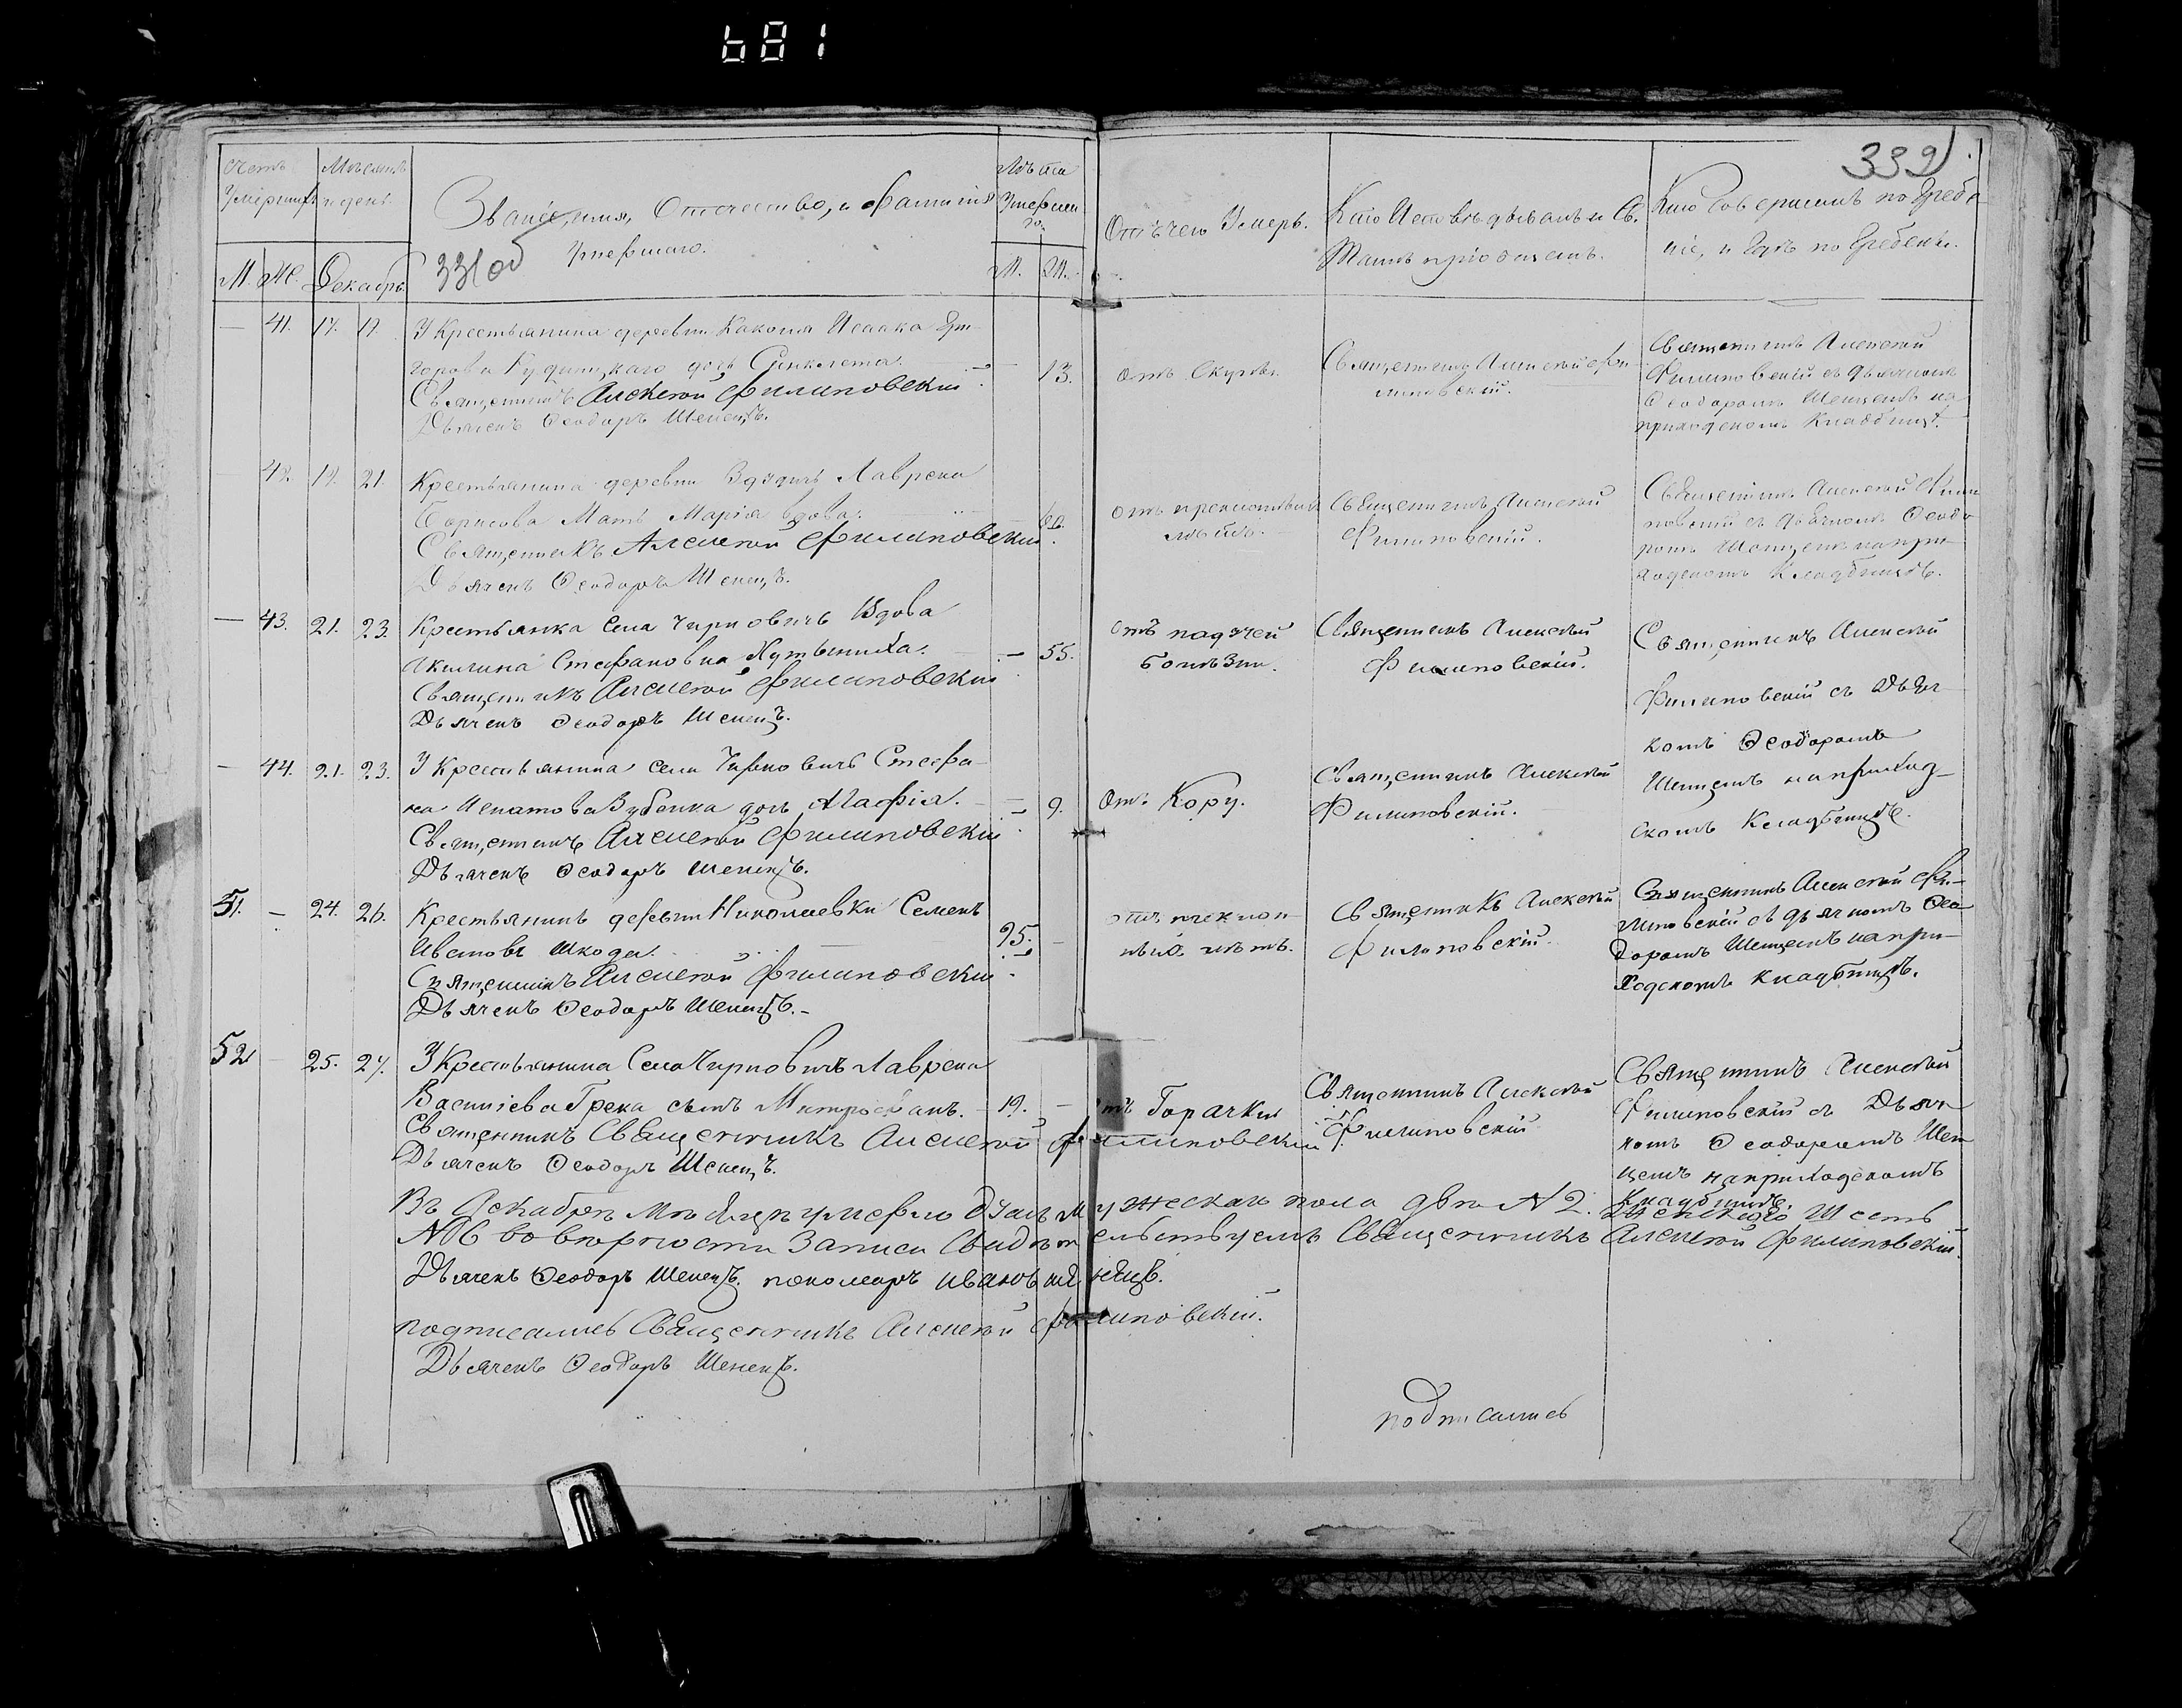 681
332
Счетъ
Умершихъ
Мѣсяцъ
и день.
Званіе, имя, Отчество, и фамилія
Умершаго.
331об
Лѣта
Умерша
го.
М. Ж. Декабрь
М. Ж.
Отъ чего Умеръ.
Кто Исповѣдывалъ и Св.
Таинъ пріобщалъ.
Кто совершалъ погребе
ніе, и гдѣ погребенъ.
— 41. 17. 19. У Крестьянина деревни Исаака Гри
горова дочь Синклета — 13.
Священникъ Алексѣй Филиповскій
Дьячекъ Ѳеодоръ Шенецъ.
Священникъ Алексѣй Фи
липовскій.
Священникъ Алексѣй
Филиповскій съ дьячкомъ
Ѳеодоромъ Шенцемъ на
приходскомъ Кладбищѣ.
— 42. 19. 21. Крестьянина деревни Лаврена
Борисова Мать Марія вдова. — 60.
Священникъ Алексѣй Филиповскій
Дьячекъ Ѳеодоръ Шенецъ.
отъ преклонныхъ
лѣтъ.
Священникъ Алексѣй
Филиповскій.
Священникъ Алексѣй Фили
повскій съ дьячкомъ Ѳеодо
ромъ Шенцемъ на при
ходскомъ Кладбищѣ.
— 43. 21. 23. Крестьянка села Чирповичъ Вдова
Акилина Стефановна — 55.
Священникъ Алексѣй Филиповскій
Дьячекъ Ѳеодоръ Шенецъ.
отъ падучей
болѣзни.
Священникъ Алексѣй
Филиповскій.
Священникъ Алексѣй
Филиповскій съ Дьяч
комъ Ѳеодоромъ
Шенцемъ на приход
скомъ Кладбищѣ.
— 44. 21. 23. У Крестьянина села Чирповичъ Стефа
на Игнатова Зубенка дочь Агафія. — 9.
Священникъ Алексѣй Филиповскій
Дьячекъ Ѳеодоръ Шенецъ.
Отъ Кору.
Священникъ Алексѣй
Филиповскій.
51. — 24. 26. Крестьянинъ деревни Николаевки Семенъ
Ивановъ Шкода. 95. —
Священникъ Алексѣй Филиповскій
Дьячекъ Ѳеодоръ Шенецъ.
отъ преклон
ныхъ лѣтъ.
Священникъ Алексѣй
Филиповскій.
Священникъ Алексѣй Фи
липовскій съ дьячкомъ Ѳео
доромъ Шенцемъ на при
ходскомъ кладбищѣ.
52 — 25. 27. У Крестьянина Села Чирповичъ Лаврена
Василіева Грека сынъ Митрофанъ. — 19. —
Священникъ Священникъ Алексѣй Филиповскій
Дьячекъ Ѳеодоръ Шенецъ.
отъ Горачки
Священникъ Алексѣй
Филиповскій
Священникъ Алексѣй
Филиповскій съ Дьяч
комъ Ѳеодоромъ Шен
цемъ на приходскомъ
Кладбищѣ.
Въ Декабрѣ Мѣсяцѣ умерло душъ мужескаго пола двѣ N 2. Женскаго Шесть
N 6 во вѣрности Записи Свидѣтельствуемъ Священникъ Алексѣй Филиповскій.
Дьячекъ Ѳеодоръ Шенецъ. пономарь Иванъ Шенецъ.
подписались Священникъ Алексѣй Филиповскій.
Дьячекъ Ѳеодоръ Шенецъ.
подписались